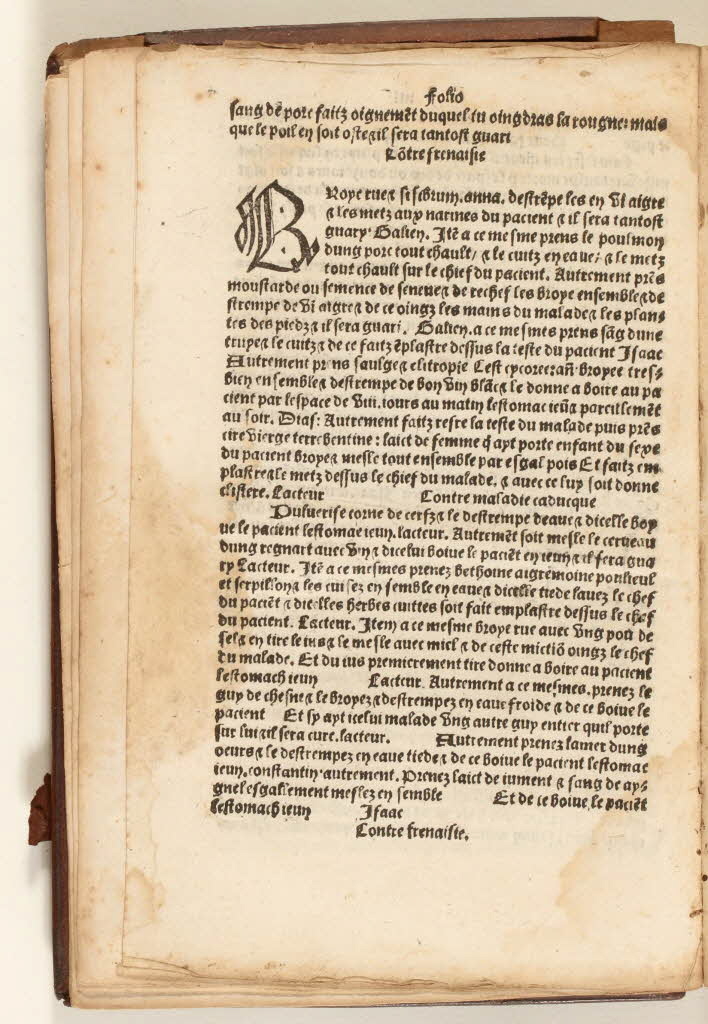 Folio
sang de porc faitz oignemēt duquel tu oingdras la rougne: mais
que le poil en soit oste⁊ il sera tantost guari
Cōtre frenaisie
BRoye rue⁊ sisibrum. anna. destrēpe les en vi aigre
⁊ les metz aux narines du pacient ⁊ il sera tantost
guary. Galien. Itē a ce mesme prens le poulmon
dung porc tout chault/ ⁊ le cuitz en eaue/ ⁊ le metz
tout chault sur le chief du pacient. Autrement prēs
moustarde ou semence de seneue⁊ de rechef les broye ensemble⁊ de
strempe de vi aigre⁊ de ce oingz les mains du malade⁊ les plan⸗
tes des piedz⁊ il sera guari. Galien. a ce mesmes prens sāg dune
truye⁊ le cuitz⁊ de ce faitz ēplastre dessus la teste du pacient Isaac
Autrement prens saulge⁊ elitropie Cest cycoree: añ. broyee tres⸗
bien ensemble⁊ destrempe de bon vin blāc⁊ le donne a boire au pa
cient par lespace de viii. iours au matin lestomac ieū⁊ pareillemēt
au soir. Dias: Autrement faitz resre la teste du malade puis prēs
cire vierge terrebentine: laict de femme q̄ ayt porte enfant du sexe
du pacient broye⁊ mesle tout ensemble par esgal pois Et faitz em
plastre⁊ le metz dessus le chief du malade. ⁊ auec ce luy soit donne
clistere. Lacteur Contre maladie caducque
Puluerise corne de cerf⁊ le destrempe deaue⁊ dicelle boy
ue le pacient lestomac ieun. lacteur. Autremēt soit mesle le cerueau
dung regnart auec vin⁊ dicelui boiue le paciēt en ieun⁊ il sera gua
ry Lacteur. Itē a ce mesmes prenez bethoine aigremoine poulieul
et serpillon⁊ les cuisez en semble en eaue⁊ dicelle tiede lauez le chef
du paciēt ⁊ dicelles herbes cuittes soit fait emplastre dessus le chef
du pacient. Lacteur. Item a ce mesme broye rue auec vng pou de
sel⁊ en tire le ius⁊ le mesle auec miel⁊ de ceste mictiō oingz le chef
du malade. Et du ius premierement tire donne a boire au pacient
lestomach ieun Lacteur. Autrement a ce mesmes. prenez le
guy de chesne⁊ le broyez⁊ destrempez en eaue froide⁊ de ce boiue le
pacient Et sy ayt icelui malade vng autre guy entier quil porte
sur lui⁊ il sera cure. lacteur. Autrement prenez lamer dung
oeurs⁊ le destrempez en eaue tiede⁊ de ce boiue le pacient lestomac
ieun. constantin autrement. Prenez laict de iument ⁊ sang de ay⸗
gnel esgallement meslez en semble Et de ce boiue le paciēt
lestomach ieun Isaac
Contre frenaisie.